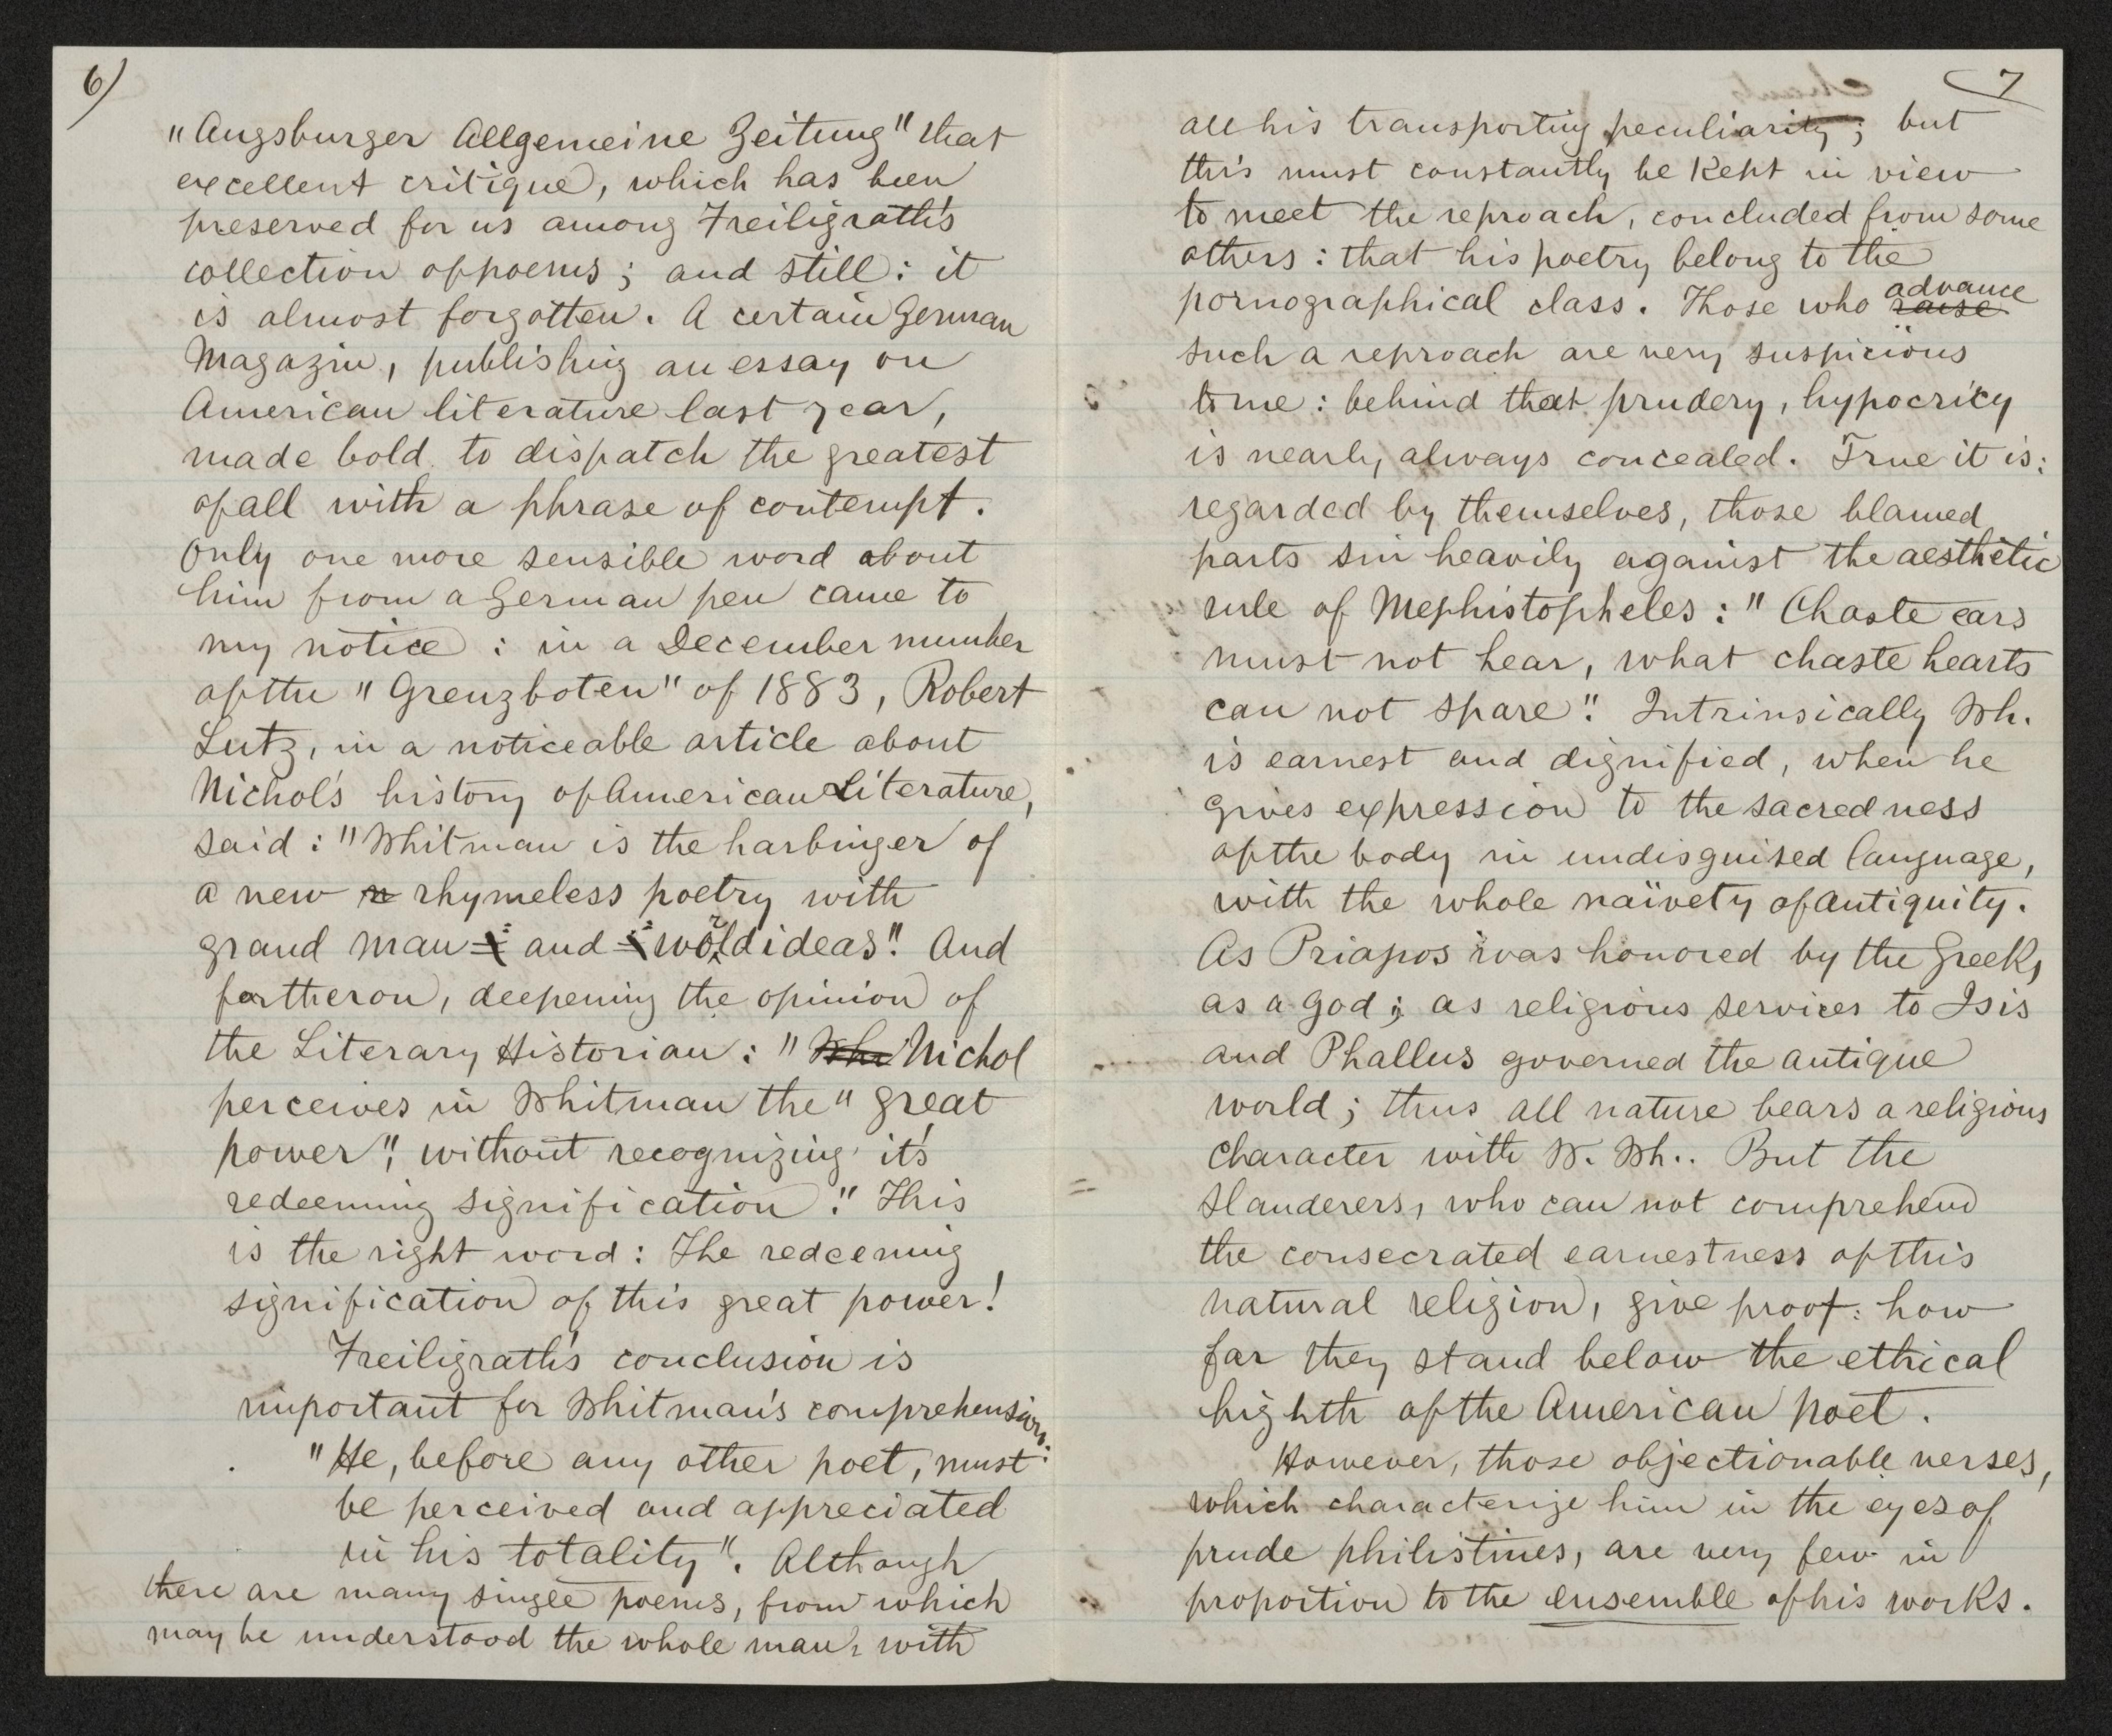 6)
"Augsburger Allgemeine Zeitung" that
excellent critique, which has been
preserved for us among Freiligrath's
collection of poems; and still: it
is almost forgotten. A certain German
Magazin, publishing an essay on
American literature last year,
made bold to dispatch the greatest
of all with a phrase of contempt.
Only one more sensible word about
him from a German pen came to
my notice: in a December number
of the "Grenzboten" of 1883, Robert
Lutz, in a noticeable article about
Nichol's history of American Literature,
said: "Whitman is the harbinger of
a new rhymeless poetry with
grand man- and world ideas." And
farther on, deepening the opinion of
the Literary Historian: "Whi Nichol
perceives in Whitman the "great
power", without recognizing it's
redeeming signification." This
is the right word: The redeeming
signification of this great power!
Freiligrath's conclusion is
important for Whitman's comprehension:
"He, before any other poet, must
be perceived and appreciated
in his totality". Although
there are many single poems, from which
may be understood the whole man, with
7
all his transporting peculiarity; but
this must constantly be kept in view
to meet the reproach, concluded from some
others: that his poetry belong to the
pornographical class. Those who raise advance
such a reproach are very suspicious
to me: behind that prudery, hypocricy
is nearly always concealed. True it is:
regarded by themselves, those blamed
parts sin heavily against the aesthetic
rule of Mephistopheles: "Chaste ears
must not hear, what chaste hearts
can not spare". Intrinsically Wh.
is earnest and dignified, when he
gives expression to the sacredness
of the body in undisguised language,
with the whole naïvety of antiquity.
As Priapos was honored by the Greeks
as a god; as religious services to Isis
and Phallus governed the antique
world; thus all nature bears a religious
character with W. Wh.. But the
slanderers, who can not comprehend
the consecrated earnestness of this
natural religion, give proof: how
far they stand below the ethical
highth of the American poet.
However, those objectionable verses,
which characterize him in the eyes of
prude philistines, are very few in
proportion to the ensemble of his works.